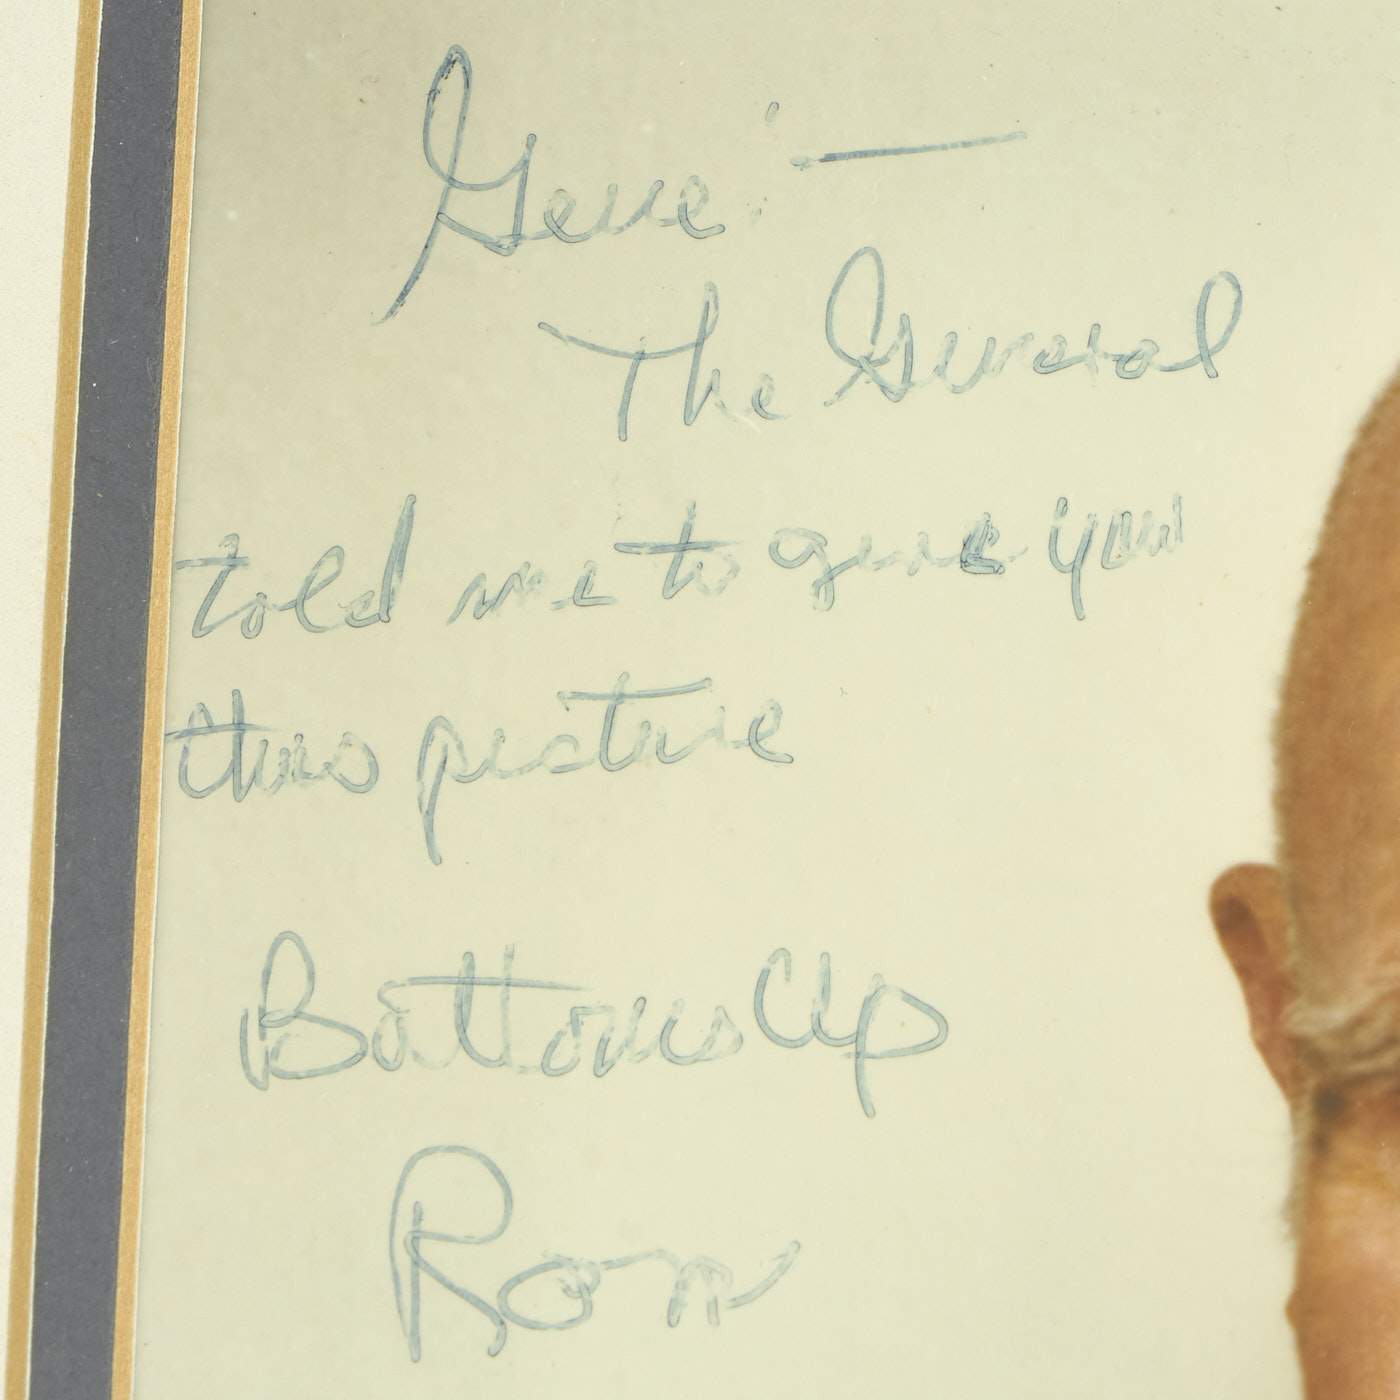 Gene: —
The General
told me to give you
this picture
Bottoms Up
Ron